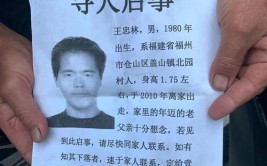 寻人启事
王忠林，男，1980年
出生，系福建省福州
市仓山区盖山镇北园
村人，身高1.75左
右，于2010年离家出
走，家里的年迈的老
父亲十分想念，若见
到此启事，请尽快同家人联系。如有
知其下落者，速于家人联系，定给